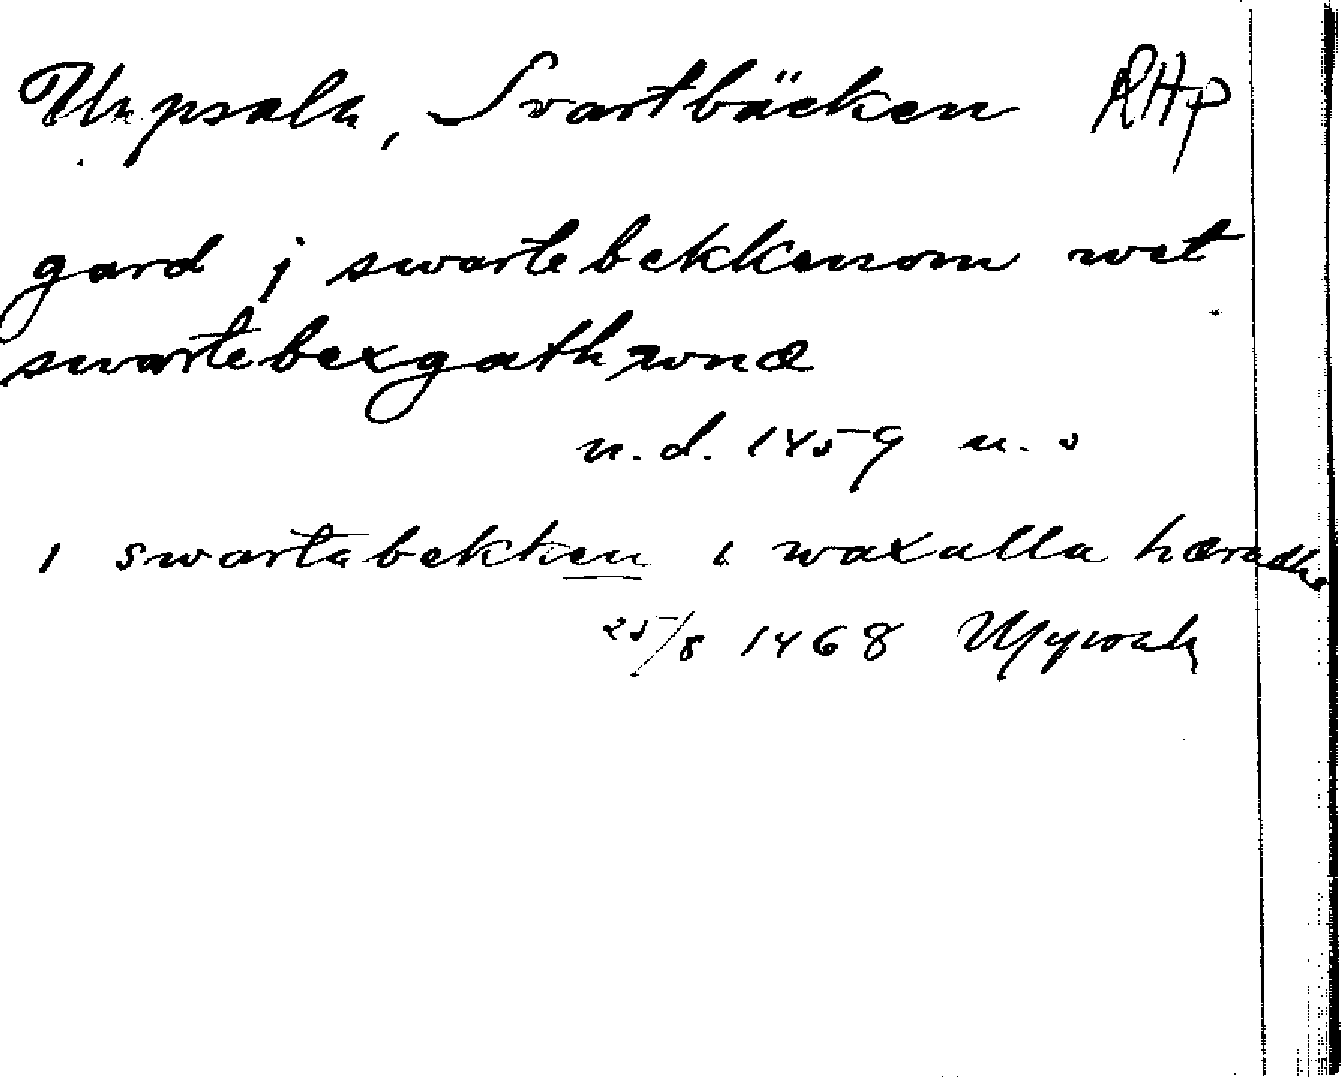 Uppsala, Svartbäcken RHp
gard j swartebekkenom wet
swartebexgathwnæ
u.d. 1459 u. o
i swartabekken i waxalla hæradhe
25/8 1468 Uppsala